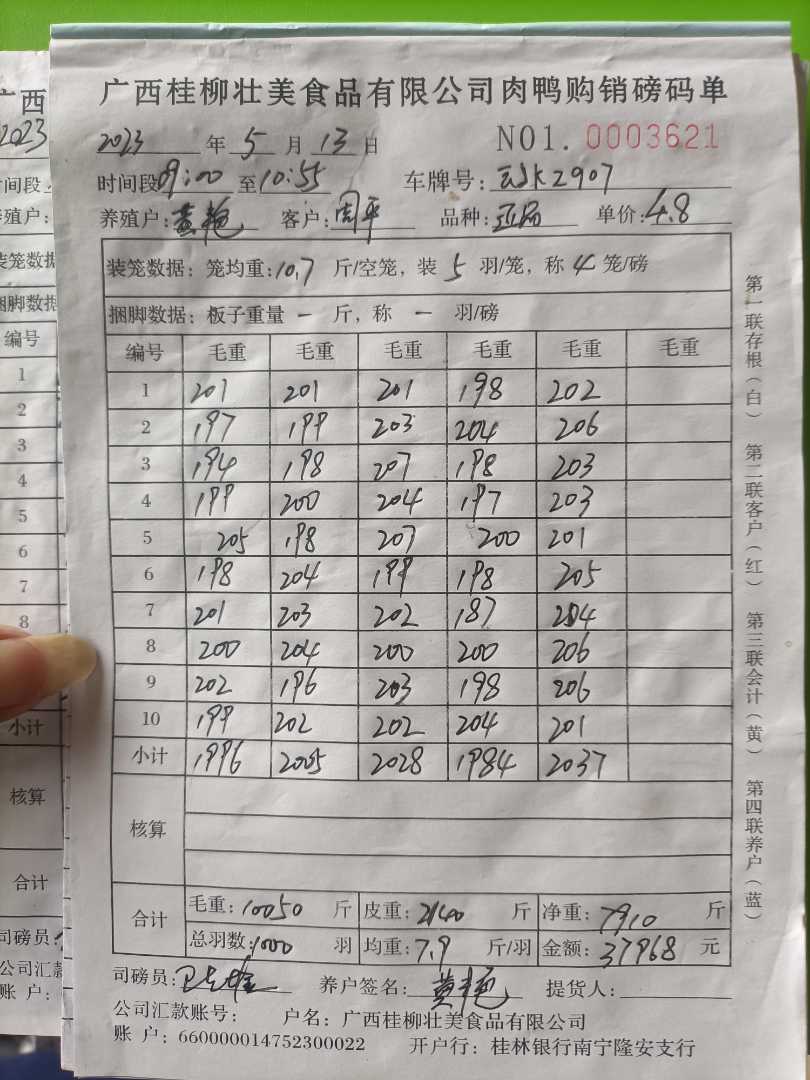 广西桂柳壮美食品有限公司肉鸭购销磅码单
2023 年 5 月 13 日 NO1. 0003621
时间段 09:00 至 10:55 车牌号: 2907
养殖户: 黄艳 客户: 周平 品种: 单价: 4.8
装笼数据: 笼均重: 10.7 斤/空笼, 装 5 羽/笼, 称 4 笼/磅
捆脚数据: 板子重量 一 斤, 称 一 羽/磅
编号 毛重 毛重 毛重 毛重 毛重 毛重
1 201 201 201 198 202
2 197 199 203 204 206
3 194 198 207 198 203
4 199 200 204 197 203
5 205 198 207 200 201
6 198 204 199 198 205
7 201 203 202 187 204
8 200 204 200 200 206
9 202 196 203 198 206
10 199 202 202 204 201
小计 1996 2005 2028 1984 2037
核算
合计 毛重: 10050 斤 皮重: 2140 斤 净重: 7910 斤
总羽数: 1000 羽 均重: 7.9 斤/羽 金额: 37968 元
司磅员: 养户签名: 黄艳 提货人:
公司汇款账号: 户名: 广西桂柳壮美食品有限公司
账 户: 660000014752300022 开户行: 桂林银行南宁隆安支行
第一联存根(白) 第二联客户(红) 第三联会计(黄) 第四联养户(蓝)
广西
2023
时间段
养殖户:
装笼数据
捆脚数据
编号
1
2
3
4
5
6
7
8
小计
核算
合计
司磅员:
公司汇款
账 户: